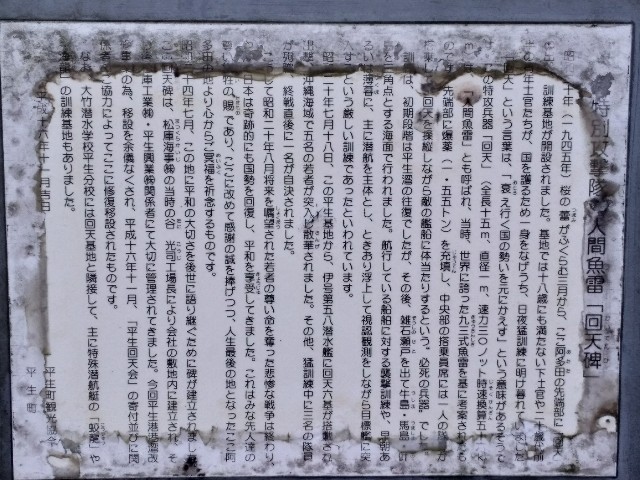 特別攻撃隊 人間魚雷「回天碑」
十年(一九四五年)桜の蕾がふくらむ三月から、ここ阿多田の先端部に「回天」
訓練基地が開設されました。基地では十八歳にも満たない下士官や二十歳前
士官たちが、国を護るため一身をなげうち、日夜猛訓練に明け暮れていました
「回天」という言葉は、「衰え行く国の勢いを元にかえす」という意味があるそうで
の特攻兵器「回天」(全長十五m、直径一m、速力三〇ノット時速換算五十
「人間魚雷」とも呼ばれ、当時、世界に誇った九三式魚雷を基に考案された
先端部に爆薬(一・五五トン)を充填し、中央部の搭乗員席には一人の隊員が
搭乗し、回天を操縦しながら敵の艦船に体当たりするという、必死の兵器でし
訓練は、初期段階は平生湾の往復でしたが、その後、雄石瀬戸を出て牛島・馬島・
を三角点とする海面で行われました。航行している船舶に対する襲撃訓練や、早朝あ
るいは薄暮に、主に潜航を主体とし、ときおり浮上して視認観測をしながら目標艦に突
入すという厳しい訓練であったといわれています。
昭和二十年七月十八日、この平生基地から、伊号第五八潜水艦に回天六基が搭載され
出撃、沖縄海域で五名の若者が突入し散華されました。その他、猛訓練中に三名の隊員
が殉職、終戦直後に一名が自決されました。
こうして昭和二十年八月将来を嘱望された若者の尊い命を奪った悲惨な戦争は終わり、
日本は奇跡的にも国勢を回復し、平和を享受してきました。これはみな先人達の
尊い犠牲の賜であり、ここに改めて感謝の誠を捧げつつ、人生最後の地となったここ阿
多田の地より心からご冥福を祈念するものです。
昭和 十四年七月、この地に平和の大切さを後世に語り継ぐために碑が建立されまし
この回天碑は、松庫海事㈱の当時の谷 光司工場長により会社の敷地内に建立され、そ
庫工業㈱・平生興業㈱関係者にて大切に管理されてきました。今回平生港港湾改
の為、移設を余儀なくされ、平成十六年十一月、「平生回天会」の寄付並びに関
ご協力によってここに修復移設されたものです。
なお、大竹潜水学校平生分校には回天基地と隣接して、主に特殊潜航艇の「蛟龍」や
海龍」の訓練基地もありました。
平成十六年十一月吉日
平生町観光協会
平生町